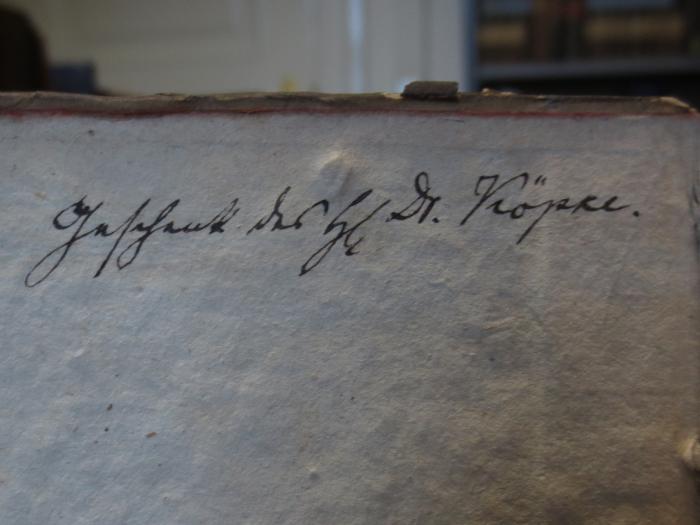 Geschenk des H Dr. Köpke.